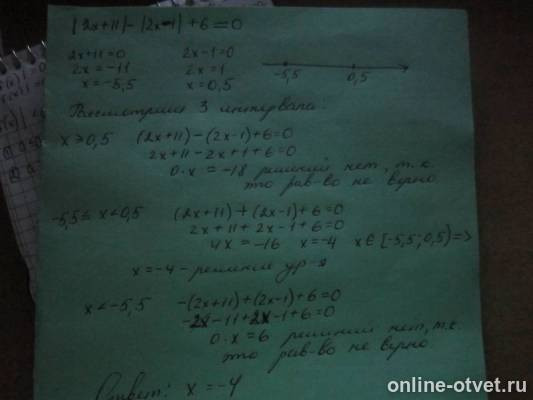 |2x+11|-|2x-1|+6=0
2x+11=0 2x-1=0
2x=-11 2x=1
x=-5,5 x=0,5
-5,5 0,5
Рассмотрим 3 интервала:
x⩾0,5 (2x+11)-(2x-1)+6=0
2x+11-2x+1+6=0
0·x=-18 решений нет, т.к
это рав-во не верно
-5,5≤x<0,5 (2x+11)+(2x-1)+6=0
2x+11+2x-1+6=0
4x=-16 x=-4 x∈[-5,5;0,5)=>
x=-4-решение ур-я
x<-5,5 -(2x+11)+(2x-1)+6=0
-2x-11+2x-1+6=0
0·x=6 решений нет, т.к.
это рав-во не верно
Ответ: x=-4
online-otvet.ru